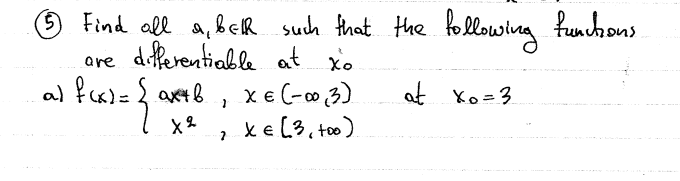 ⑤ Find all a, b ∈ ℝ such that the following functions
are differentiable at x₀
a) f(x) = { ax+b , x ∈ (-∞, 3) at x₀ = 3
x² , x ∈ [3, +∞)